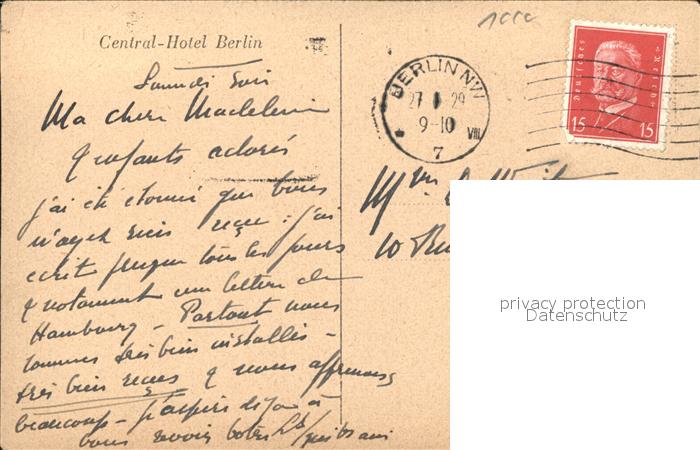 Central-Hotel Berlin
Samedi soir
Ma chere Madeleine
& enfants adorés
j'ai été étonné que vous
n'ayez rien reçu : j'ai
ecrit presque tous les jours
& notamment une lettre de
Hambourg - Partout nous
sommes très bien installés -
très bien reçus & nous apprenons
beaucoup - j'aspire déjà à
vous revoir
BERLIN NW
27 29
9-10 VIII
7
Deutsches Reich
15 15
Mme
10 Ru
privacy protection
Datenschutz